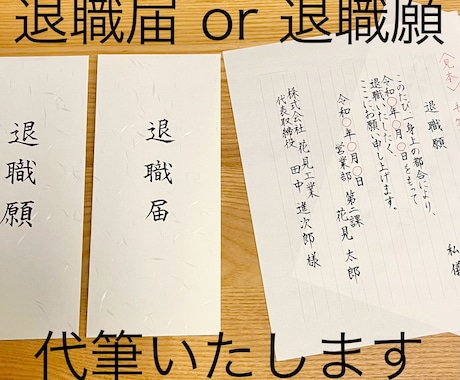 退職届 or 退職願
退職願
退職届
〈見本〉
退職願
私儀
このたび一身上の都合により、
令和〇年〇月〇日をもって
退職いたしたく
ここにお願い申し上げます。
令和〇年〇月〇日
営業部 第二課
花見 太郎
株式会社 花見工業
代表取締役 田中 進次郎 様
代筆いたします